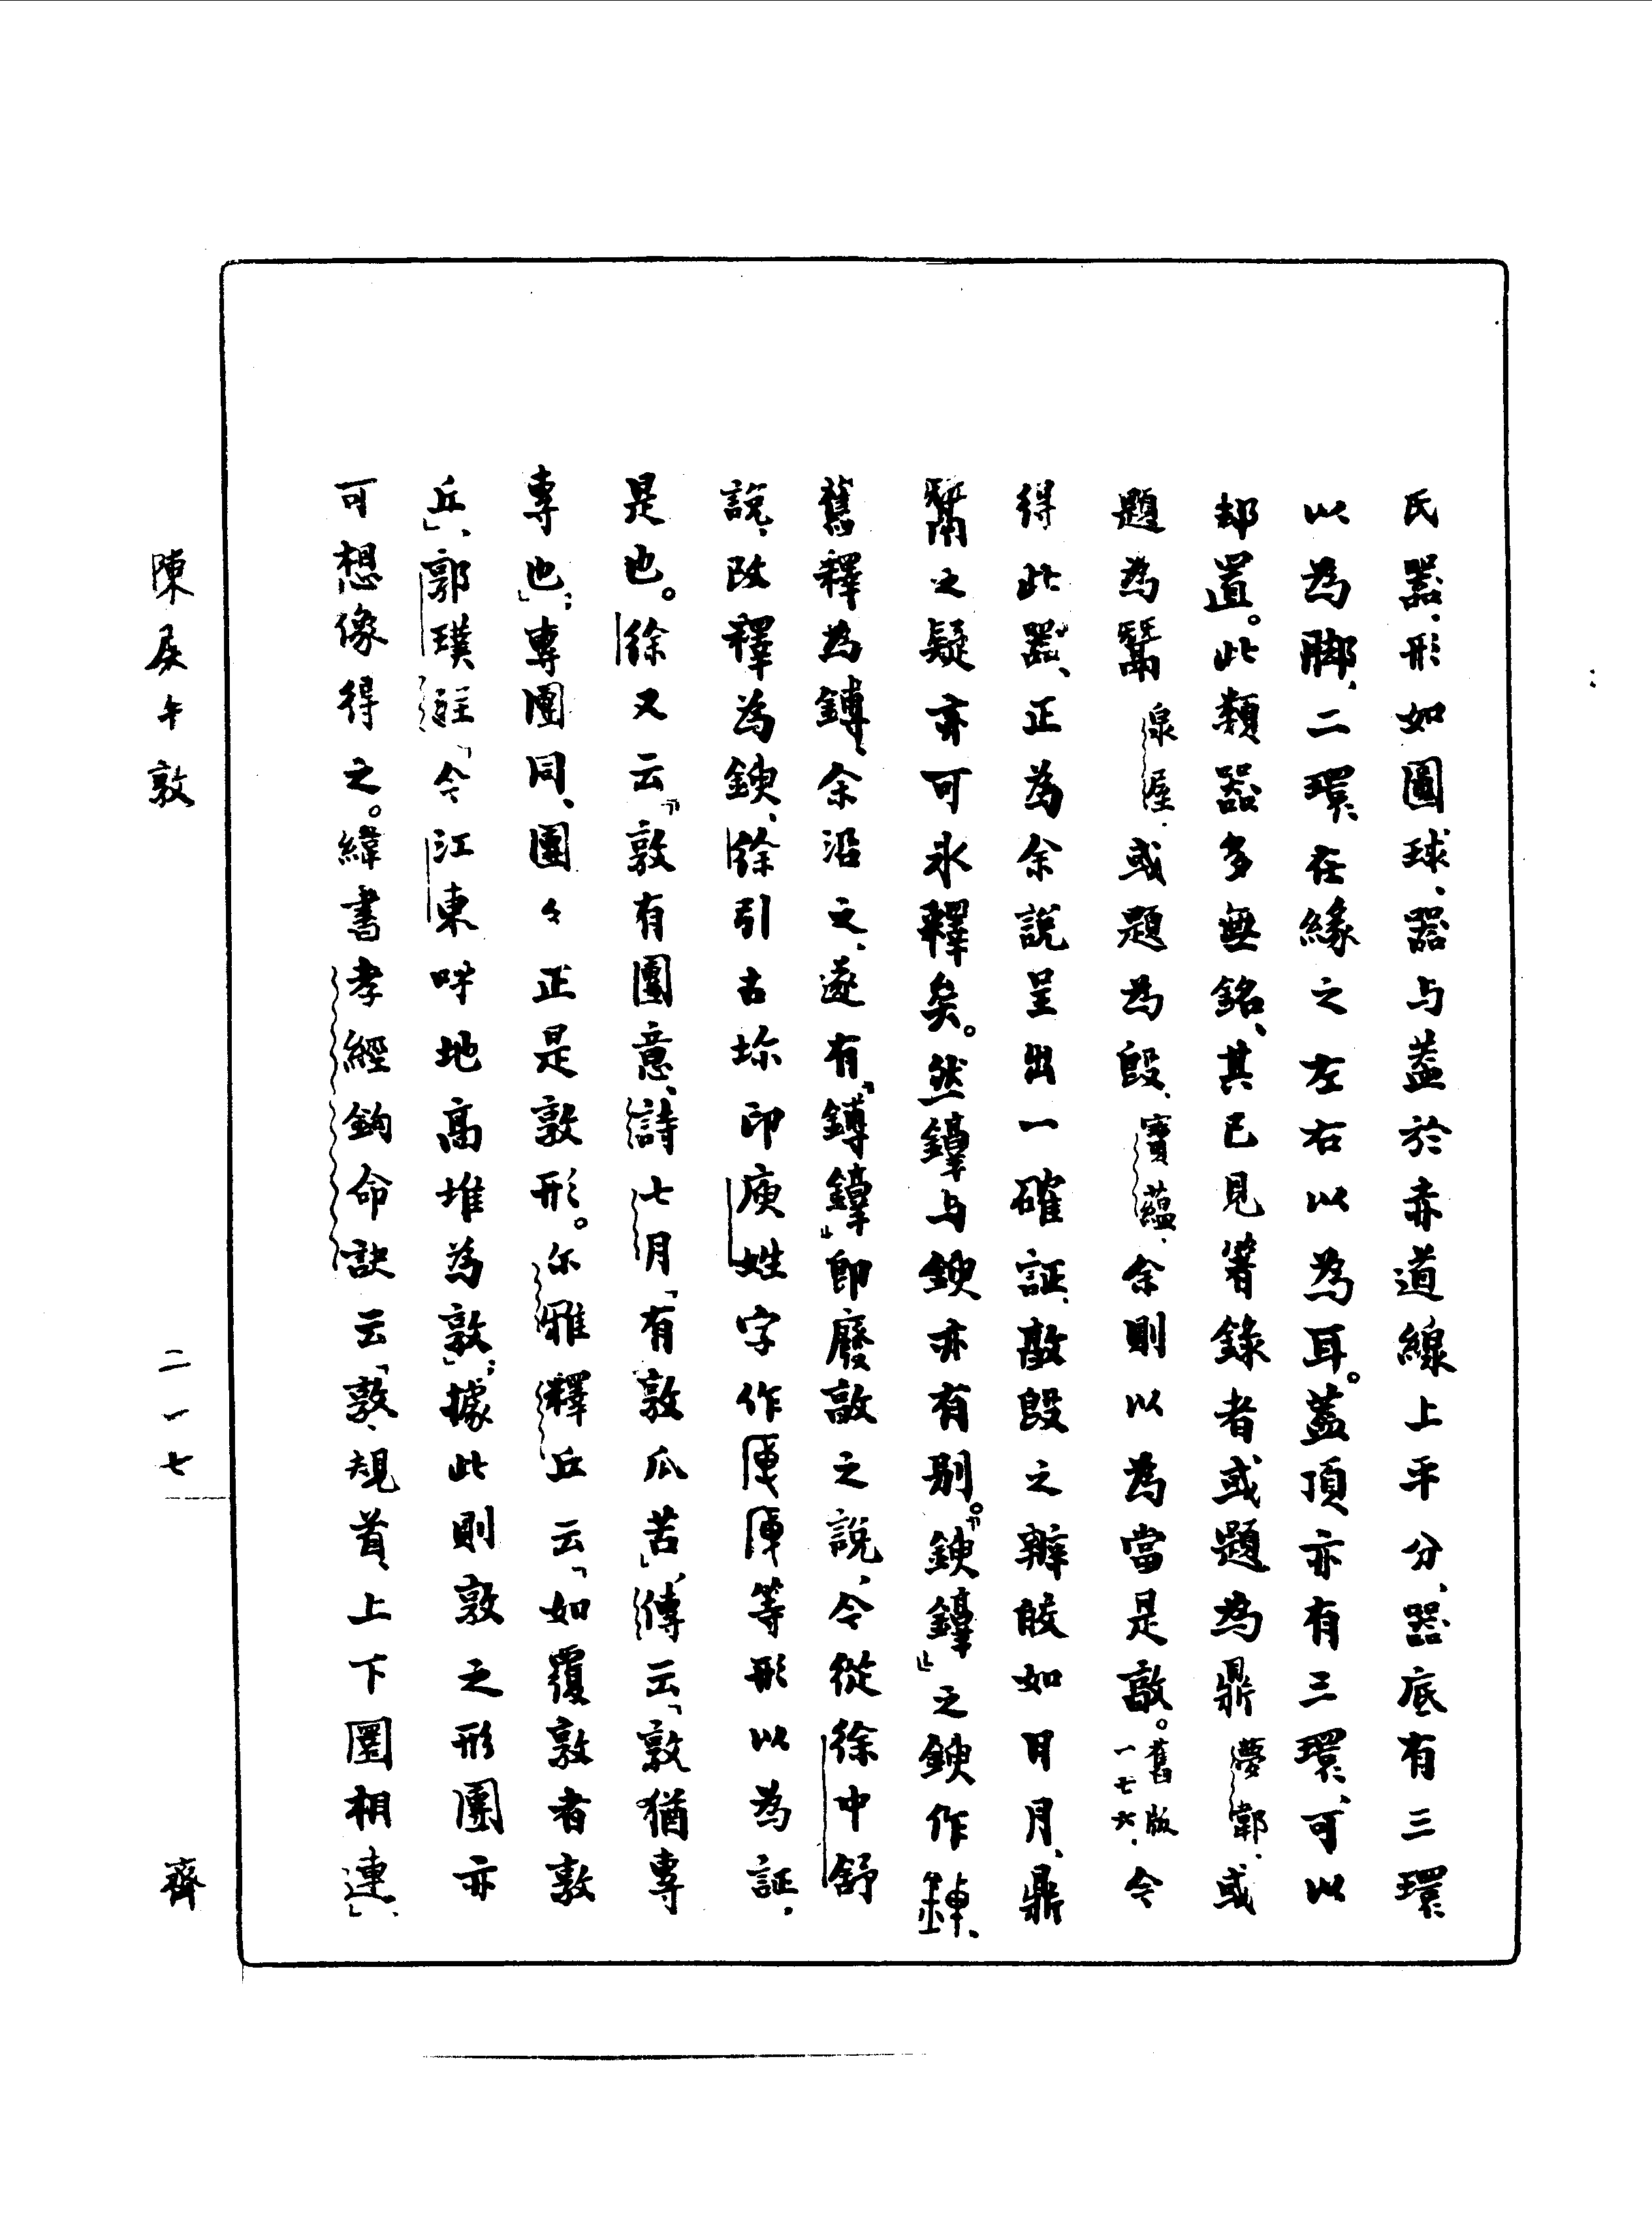 氏器、形如圓球、器与蓋於赤道線上平分、器底有三環
以為脚、二環在緣之左右以為耳。蓋頂亦有三環、可以
却置。此類器多無銘、其已見箸錄者或題為鼎夢郼、或
題為鬶泉屋、或題為𣪘、寶蘊、余則以為當是𣪘。舊版一七六、今
得此器、正為余說呈出一確証、𣪘之辨皎如日月、鼎
之疑亦可氷釋矣。然鐘与鍥亦有別。『鍥鐘』之鍥作
舊釋為鎛、余沿之、遂有『鎛』即廢敦之說、今從徐中舒
說、改釋為鍥、徐引古鉨印庾姓字作等形以為証、
是也。徐又云『敦有團意、詩七月「有敦瓜苦」、傳云「敦猶專
專也」；專團同、團々正是敦形。尔雅釋丘云「如覆敦者敦
丘」、郭璞註「今江東呼地高堆為敦」；據此則敦之形團亦
可想像得之。緯書孝經鉤命訣云「敦、規首、上下圜相連」、
陳侯午敦
二一七
齊